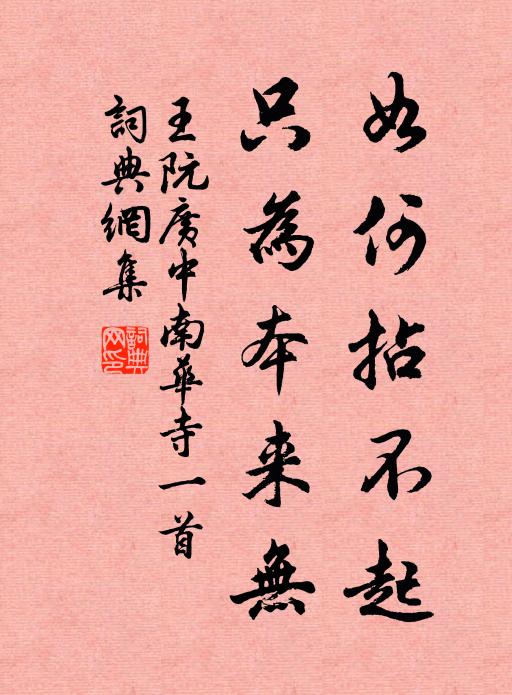 如何拈不起
只為本来無
王阮廣中南華寺一首
詞典網集
詞典網印